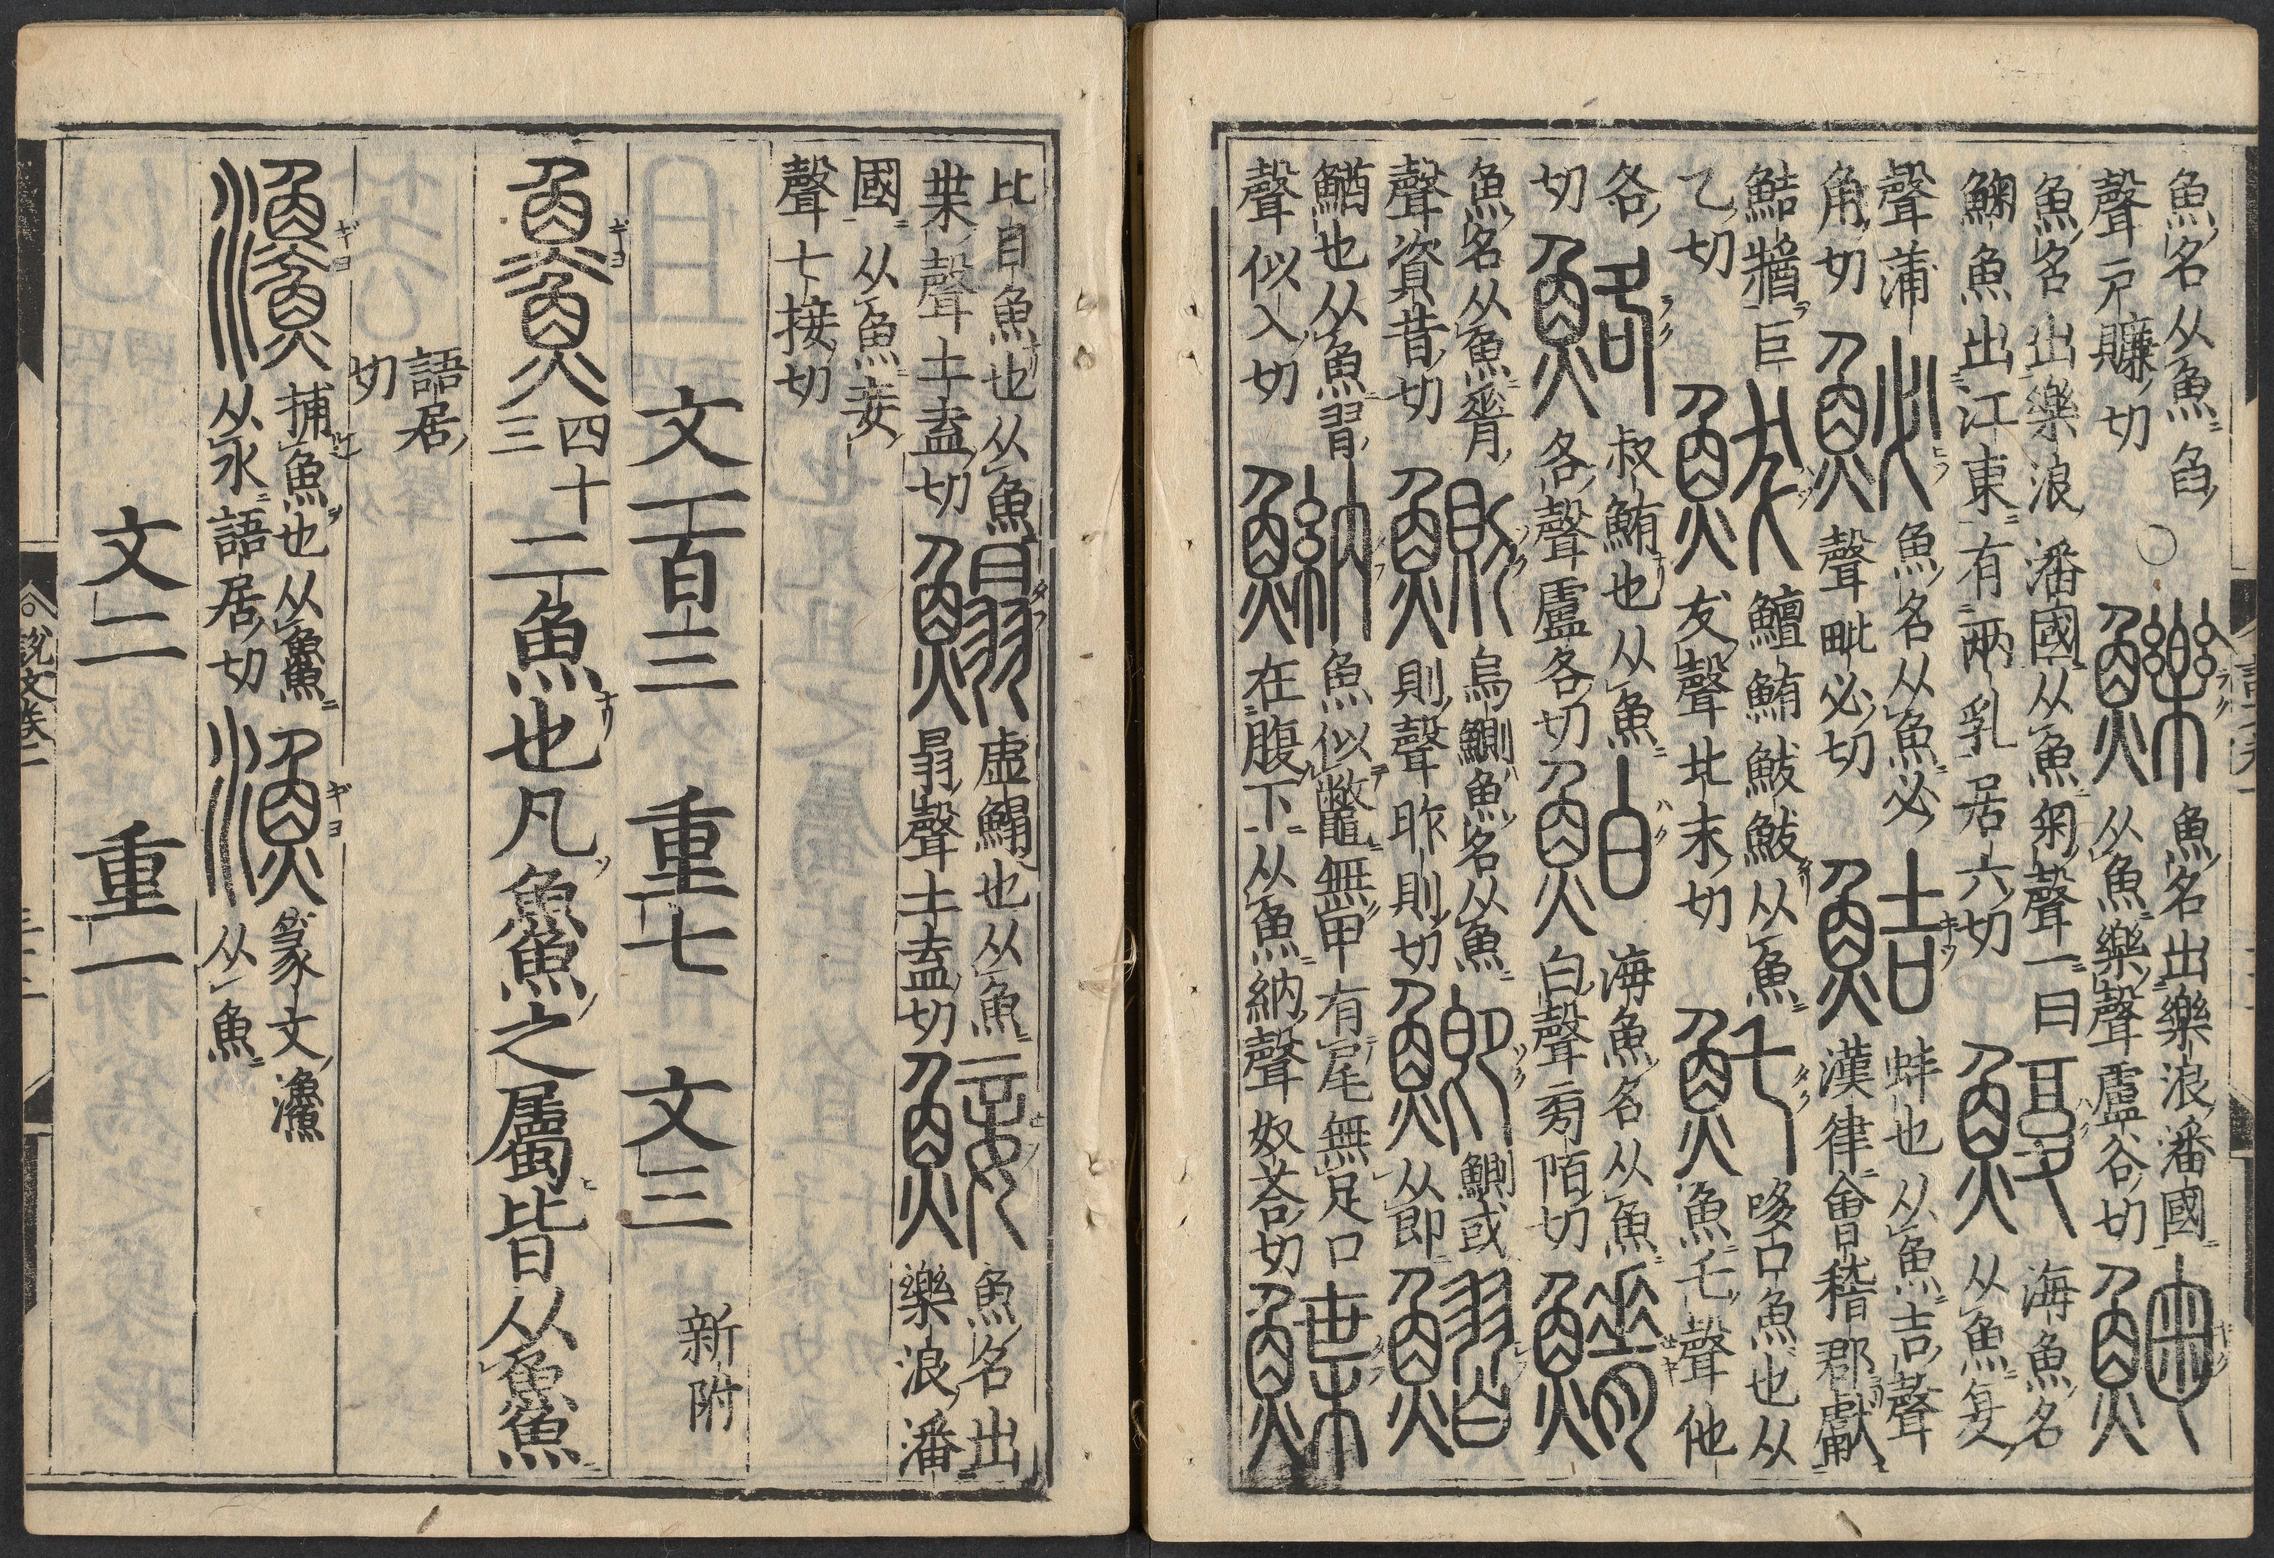 魚名从魚臽
聲戸賺切
鱳
魚名出樂浪潘國
从魚樂聲盧谷切
䱡
魚名出樂浪潘國从魚匊聲一曰
鯠魚出江東有兩乳居六切
鰒
海魚名
从魚复
聲蒲
角切
鮅
魚名从魚必
聲毗必切
鮚
蚌也从魚吉聲
漢律會稽郡獻
鮚醬巨
乙切
鮁
鱣鮪鮁鮁从魚
犮聲北末切
魠
哆口魚也从
魚乇聲他
各
切
鮥
叔鮪也从魚
各聲盧各切
鮊
海魚名从魚
白聲旁陌切
魚名从魚脊
聲資昔切
鰂
烏鰂魚名从魚
則聲昨則切
鯽
鰂或
从即
鰼
鰌也从魚習
聲似入切
魶
魚似鼈無甲有尾無足口
在腹下从魚納聲奴荅切
鰈
比目魚也从魚
枼聲土盍切
鰨
虛鰨也从魚
𦐇聲土盍切
鯜
魚名出
樂浪潘
國从魚妾
聲七接切
文一百三 重七 文三 新附
䲆 四十三 二魚也凡䲆之屬皆从䲆
語居
切
𤅯
捕魚也从䲆
从水語居切
漁
篆文𤅯
从魚
文二 重一
說文卷二